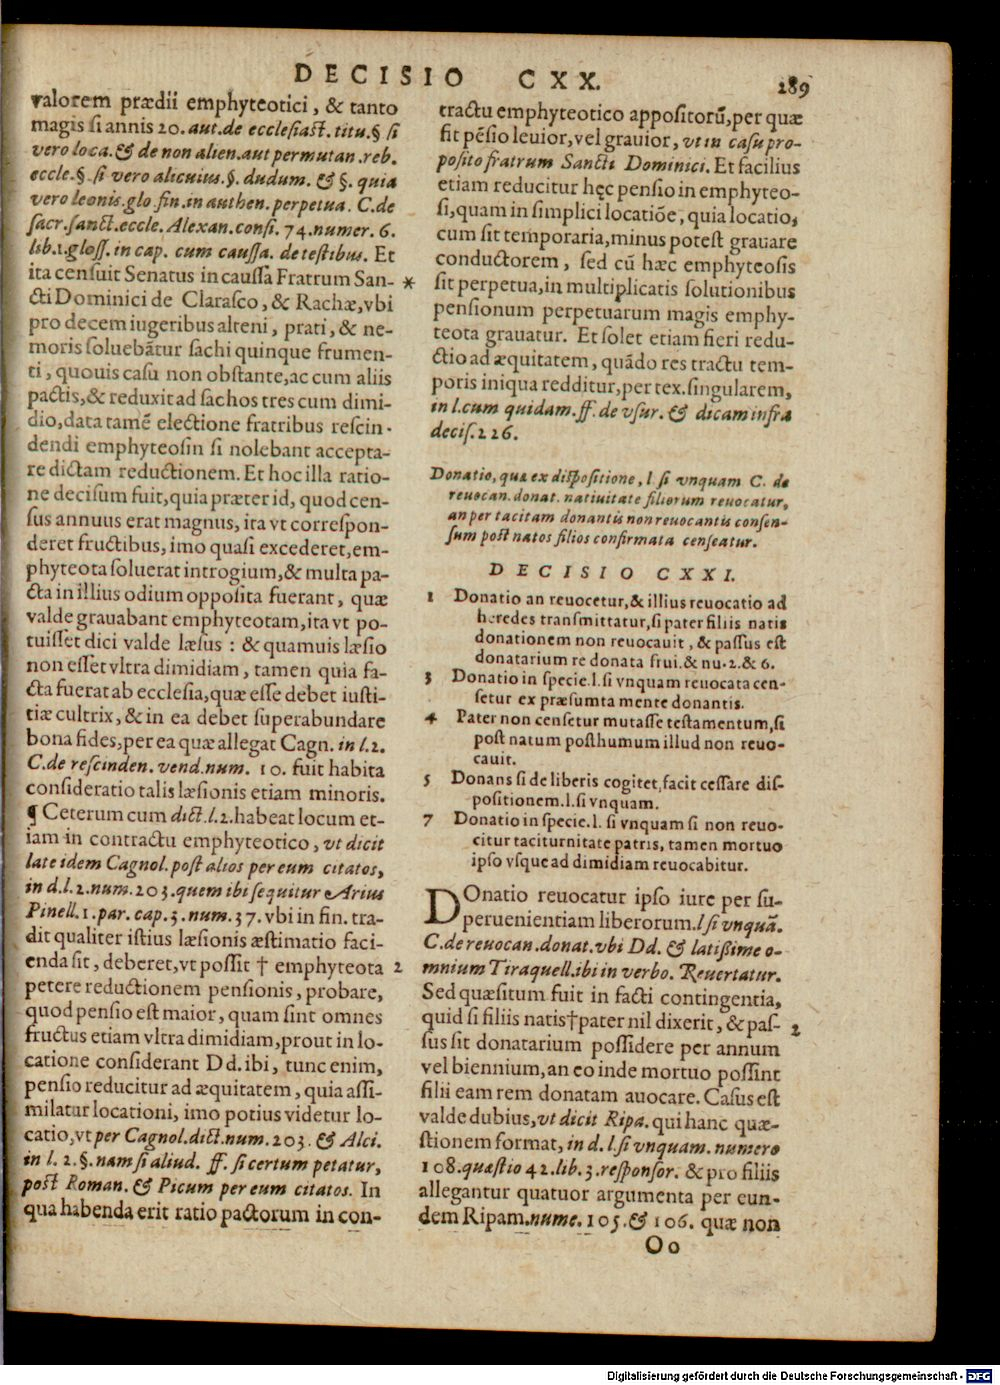 DECISIO CXX. 289
valorem prædii emphyteotici, & tanto
magis si annis 20. aut. de ecclesiast. titu. § si
vero loca. & de non alien. aut permutan. reb.
eccle. §. si vero alicuius. §. dudum. & §. quia
vero leonis. glo. fin. in authen. perpetua. C. de
sacr. sanct. eccle. Alexan. consi. 74. numer. 6.
lib. 1. gloss. in cap. cum caussa. de testibus. Et
ita censuit Senatus in caussa Fratrum San- *
cti Dominici de Clarasco, & Rachæ, vbi
pro decem iugeribus alteni, prati, & ne-
moris soluebātur sachi quinque frumen-
ti, quouis casu non obstante, ac cum aliis
pactis, & reduxit ad sachos tres cum dimi-
dio, data tamē electione fratribus rescin-
dendi emphyteosin si nolebant accepta-
re dictam reductionem. Et hoc illa ratio-
ne decisum fuit, quia præter id, quod cen-
sus annuus erat magnus, ita vt correspon-
deret fructibus, imo quasi excederet, em-
phyteota soluerat introgium, & multa pa-
cta in illius odium opposita fuerant, quæ
valde grauabant emphyteotam, ita vt po-
tuisset dici valde læsus : & quamuis læsio
non esset vltra dimidiam, tamen quia fa-
cta fuerat ab ecclesia, quæ esse debet iusti-
tiæ cultrix, & in ea debet superabundare
bona fides, per ea quæ allegat Cagn. in l. 2.
C. de rescinden. vend. num. 10. fuit habita
consideratio talis læsionis etiam minoris.
¶ Ceterum cum dict. l. 2. habeat locum et-
iam in contractu emphyteotico, vt dicit
late idem Cagnol. post alios per eum citatos,
in d. l. 2. num. 203. quem ibi sequitur Arius
Pinell. 1. par. cap. 3. num. 37. vbi in fin. tra-
dit qualiter istius læsionis æstimatio faci-
enda sit, deberet, vt possit † emphyteota 2
petere reductionem pensionis, probare,
quod pensio est maior, quam sint omnes
fructus etiam vltra dimidiam, prout in lo-
catione considerant Dd. ibi, tunc enim,
pensio reducitur ad æquitatem, quia assi-
milatur locationi, imo potius videtur lo-
catio, vt per Cagnol. dict. num. 203. & Alci.
in l. 2. §. nam si aliud. ff. si certum petatur,
post Roman. & Picum per eum citatos. In
qua habenda erit ratio pactorum in con-
tractu emphyteotico appositorū, per quæ
fit pēsio leuior, vel grauior, vt in casu pro-
posito fratrum Sancti Dominici. Et facilius
etiam reducitur hęc pensio in emphyteo-
si, quam in simplici locatiōe, quia locatio,
cum sit temporaria, minus potest grauare
conductorem, sed cū hæc emphyteosis
sit perpetua, in multiplicatis solutionibus
pensionum perpetuarum magis emphy-
teota grauatur. Et solet etiam fieri redu-
ctio ad æquitatem, quādo res tractu tem-
poris iniqua redditur, per tex. singularem,
in l. cum quidam. ff. de vsur. & dicam infra
decis. 226.
Donatio, quæ ex dispositione, l. si vnquam C. de
reuocan. donat. natiuitate filiorum reuocatur,
an per tacitam donantis non reuocantis consen-
sum post natos filios confirmata censeatur.
DECISIO CXXI.
1 Donatio an reuocetur, & illius reuocatio ad
heredes transmittatur, si pater filiis natis
donationem non reuocauit, & passus est
donatarium re donata frui. & nu. 2. & 6.
3 Donatio in specie. l. si vnquam reuocata cen-
setur ex præsumta mente donantis.
4 Pater non censetur mutasse testamentum, si
post natum posthumum illud non reuo-
cauit.
5 Donans si de liberis cogitet, facit cessare dis-
positionem. l. si vnquam.
7 Donatio in specie. l. si vnquam si non reuo-
citur taciturnitate patris, tamen mortuo
ipso vsque ad dimidiam reuocabitur.
DOnatio reuocatur ipso iure per su-
peruenientiam liberorum. l si vnquā.
C. de reuocan. donat. vbi Dd. & latissime o-
mnium Tiraquell. ibi in verbo. Reuertatur.
Sed quæsitum fuit in facti contingentia,
quid si filiis natis † pater nil dixerit, & pas- 2
sus sit donatarium possidere per annum
vel biennium, an eo inde mortuo possint
filii eam rem donatam auocare. Casus est
valde dubius, vt dicit Ripa. qui hanc quæ-
stionem format, in d. l. si vnquam. numero
108. quæstio 42. lib. 3. responsor. & pro filiis
allegantur quatuor argumenta per eun-
dem Ripam. nume. 105. & 106. quæ non
Oo
Digitalisierung gefördert durch die Deutsche Forschungsgemeinschaft - DFG